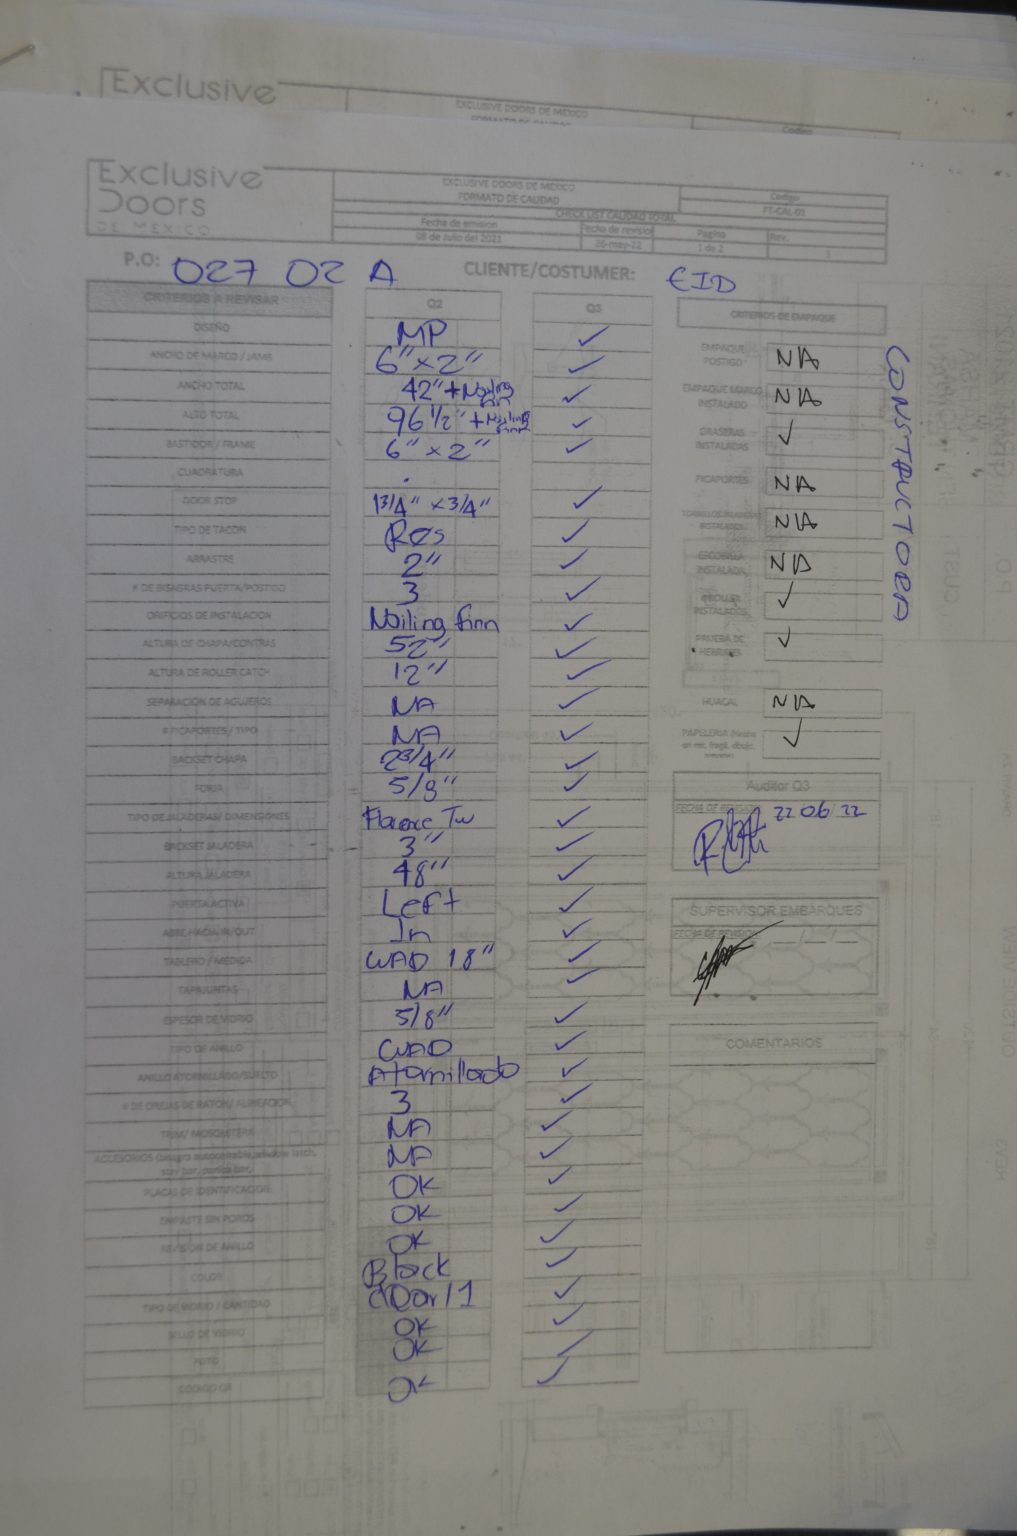 Exclusive
EXCLUSIVE DOORS DE MEXICO
Codigo
Exclusive
Doors
DE MEXICO
EXCLUSIVE DOORS DE MEXICO
FORMATO DE CALIDAD
CHECK LIST CALIDAD TOTAL
Codigo
FT-CAL-01
Fecha de emision
Fecha de revision
Pagina
Rev.
08 de Julio del 2021
26-may-22
1 de 2
3
P.O: 027 02 A
CLIENTE/COSTUMER: EID
CONSTRUCTORA
CRITERIOS A REVISAR Q2 Q3
DISEÑO MP ✓
ANCHO DE MARCO / JAMB 6" x 2" ✓
ANCHO TOTAL 42" + Nailing finn ✓
ALTO TOTAL 96 1/2" + Nailing finn ✓
BASTIDOR / FRAME 6" x 2" ✓
CUADRATURA .
DOOR STOP 1 3/4" x 3/4" ✓
TIPO DE TACON Res ✓
ARRASTRE 2" ✓
# DE BISAGRAS PUERTA/POSTIGO 3 ✓
ORIFICIOS DE INSTALACION Nailing finn ✓
ALTURA DE CHAPA/CONTRAS 52" ✓
ALTURA DE ROLLER CATCH 12" ✓
SEPARACION DE AGUJEROS NA ✓
# PICAPORTES / TIPO NA ✓
BACKSET CHAPA 2 3/4" ✓
FORJA 5/8" ✓
TIPO DE JALADERAS/ DIMENSIONES Florence Tw ✓
BACKSET JALADERA 3" ✓
ALTURA JALADERA 48" ✓
PUERTA ACTIVA Left ✓
ABRE HACIA IN/OUT In ✓
TABLERO / MEDIDA WAD 18" ✓
TAPAJUNTAS NA ✓
ESPESOR DE VIDRIO 5/8" ✓
TIPO DE ANILLO WAD ✓
ANILLO ATORNILLADO/SUELTO Atornillado ✓
# DE OREJAS DE RATON/ ALINEACION 3 ✓
TRIM/ MOSQUITERA NA ✓
NA ✓
PLACAS DE IDENTIFICACION OK ✓
EMPASTE SIN POROS OK ✓
REVISION DE ANILLO OK ✓
COLOR Black ✓
TIPO DE VIDRIO / CANTIDAD /1 ✓
SELLO DE VIDRIO OK ✓
FOTO OK ✓
CODIGO QR OK ✓
CRITERIOS DE EMPAQUE
EMPAQUE POSTIGO NA
EMPAQUE MARCO INSTALADO NA
GRASERAS INSTALADAS ✓
PICAPORTES NA
NA
ESCOBILLA INSTALADA NA
ROLLER INSTALADOS ✓
PRUEBA DE HERRAJES ✓
HUACAL NA
PAPELERIA ✓
Auditor Q3
FECHA DE REVISION 22 06 22
SUPERVISOR EMBARQUES
FECHA DE REVISION
COMENTARIOS